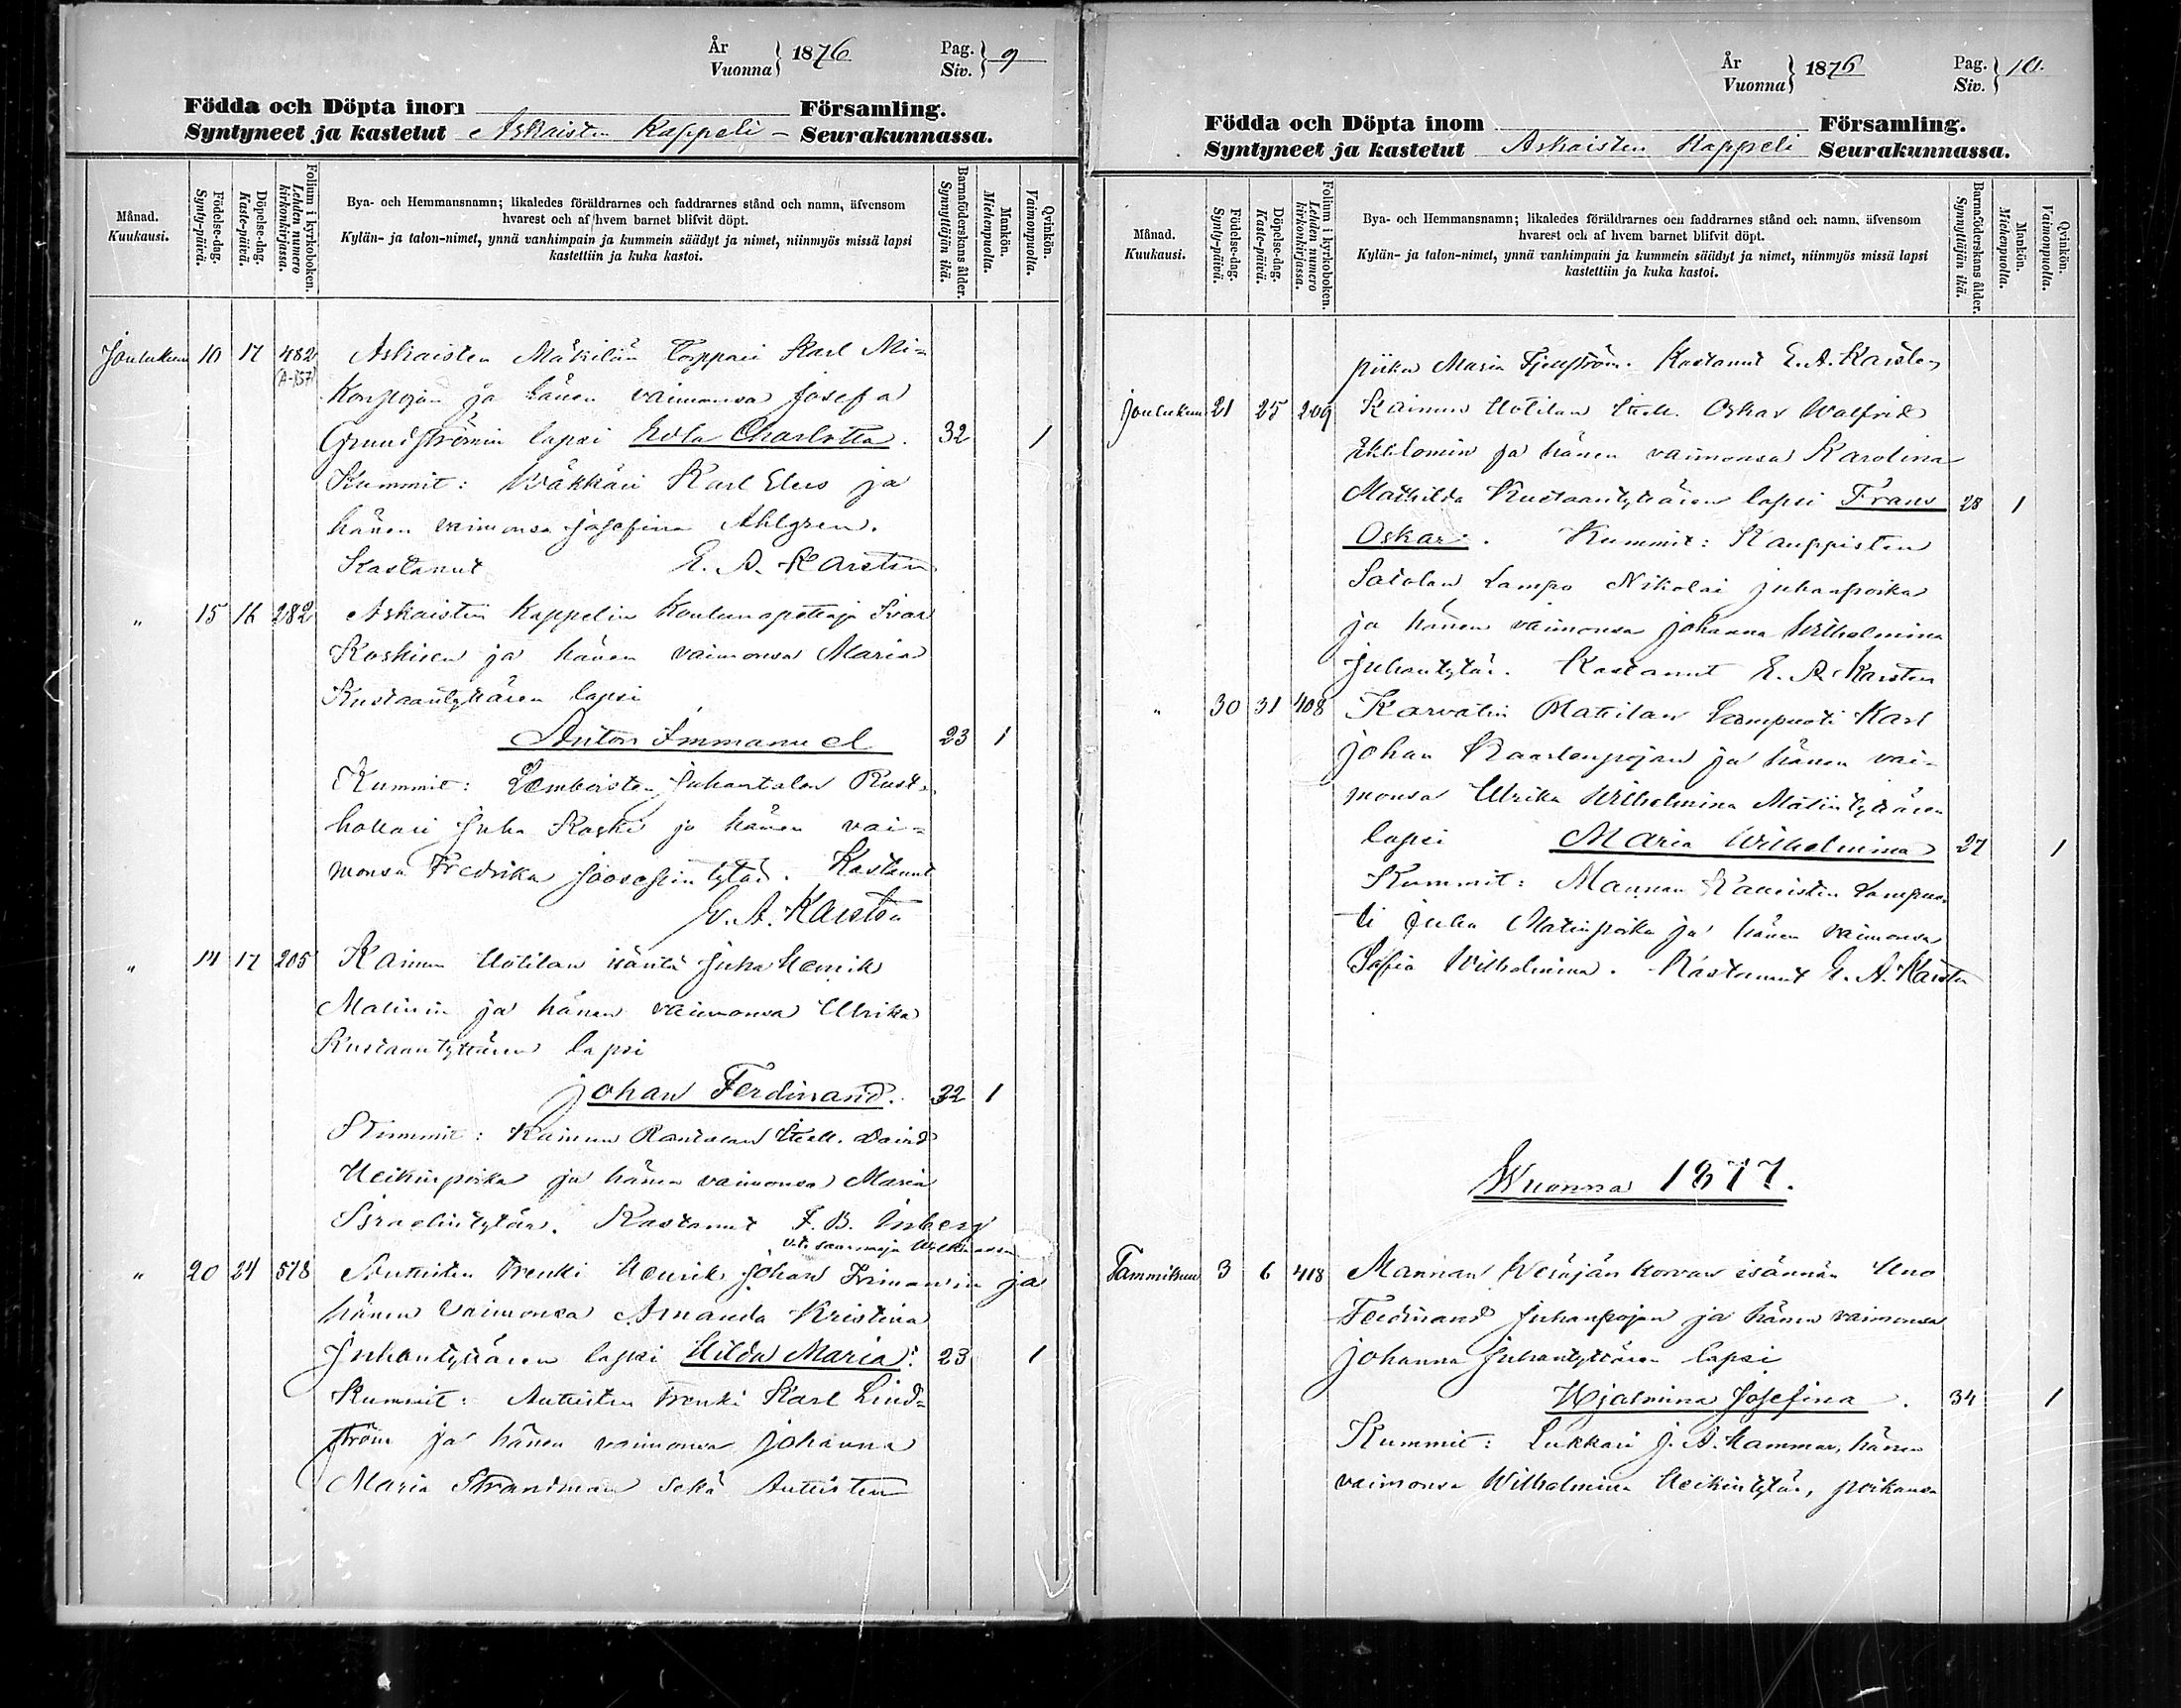 År
Vuonna } 1876
Pag.
Siv. } 9
Födda och Döpta inom Församling.
Syntyneet ja kastetut Askaisten Kappeli Seurakunnassa.
Månad.
Kuukausi.
Födelse-dag.
Synty-päivä.
Döpelse-dag.
Kaste-päivä.
Folium i kyrkoboken.
Lehden numero
kirkonkirjassa.
Bya- och Hemmansnamn; likaledes föräldrarnes och faddrarnes stånd och namn, äfvensom
hvarest och af hvem barnet blifvit döpt.
Kylän- ja talon-nimet, ynnä vanhimpain ja kummein säädyt ja nimet, niinmyös missä lapsi
kastettiin ja kuka kastoi.
Barnaföderskans ålder.
Synnyttäjän ikä.
Mankön.
Miehenpuolta.
Qvinkön.
Vaimonpuolta.
Joulukuu 10 17 482 Askaisten Mäkilän Torppari Karl Mi-
konpojan ja hänen vaimonsa Josefa
Grundströmin lapsi Edla Charlotta. 32 1
Kummit: Wäkkäri Karl Elers ja
hänen vaimonsa Josefina Ahlgren.
Kastanut E. A. Karsten
" 15 16 282 Askaisten Kappelin Koulunopettaja Ivar
Koskisen ja hänen vaimonsa Maria
Kustaantyttären lapsi
Anton Immanuel 23 1
Kummit: Lemboisten Juhantalon Rust-
hollari Juha Koski ja hänen vai-
monsa Fredrika Joosepintytär. Kastanut
E. A. Karsten
" 14 17 205 Kainun Uotilan isäntä Juha Henrik
Matinin ja hänen vaimonsa Ulrika
Kustaantyttären lapsi
Johan Ferdinand. 32 1
Kummit: Kainun Rantalan David
Heikinpoika ja hänen vaimonsa Maria
Israelintytär. Kastanut F. B. Inberg
" 20 24 578 Autuisten Trenki Henrik Johan Frimanin ja
hänen vaimonsa Amanda Kristina
Juhantyttären lapsi Hilda Maria: 23 1
Kummit: Autuisten Trenki Karl Lind-
ström ja hänen vaimonsa Johanna
Maria Strandman sekä Autuisten
År
Vuonna } 1876
Pag.
Siv. } 10.
Födda och Döpta inom Församling.
Syntyneet ja kastetut Askaisten Kappeli Seurakunnassa.
Månad.
Kuukausi.
Födelse-dag.
Synty-päivä.
Döpelse-dag.
Kaste-päivä.
Folium i kyrkoboken.
Lehden numero
kirkonkirjassa.
Bya- och Hemmansnamn; likaledes föräldrarnes och faddrarnes stånd och namn, äfvensom
hvarest och af hvem barnet blifvit döpt.
Kylän- ja talon-nimet, ynnä vanhimpain ja kummein säädyt ja nimet, niinmyös missä lapsi
kastettiin ja kuka kastoi.
Barnaföderskans ålder.
Synnyttäjän ikä.
Mankön.
Miehenpuolta.
Qvinkön.
Vaimonpuolta.
piika Maria. Kastanut E. A. Karsten
Joulukuu 21 25 209 Kainun Uotilan Oskar Walfrid
Ekblomin ja hänen vaimonsa Karolina
Mathilda Kustaantyttären lapsi Frans 28 1
Oskar. Kummit: Kauppisten
Satolan Lampo Nikolai Juhanpoika
ja hänen vaimonsa Johanna Wilhelmina
Juhantytär. Kastanut E. A. Karsten
" 30 31 408 Karvatin Matilan Lampuoti Karl
Johan Kaarlenpojan ja hänen vai-
monsa Ulrika Wilhelmina Matintyttären
lapsi Maria Wilhelmina 27 1
Kummit: Mannan Lampuo-
ti Juha Matinpoika ja hänen vaimonsa
Sofia Wilhelmina. Kastanut E. A. Karsten
Wuonna 1877.
Tammikuu 3 6 418 Mannan isännän Uno
Ferdinand Juhanpojan ja hänen vaimonsa
Johanna Juhantyttären lapsi
Hjalmina Josefina. 34 1
Kummit: Lukkari J. A. Hammar, hänen
vaimonsa Wilhelmina Heikintytär, poikansa